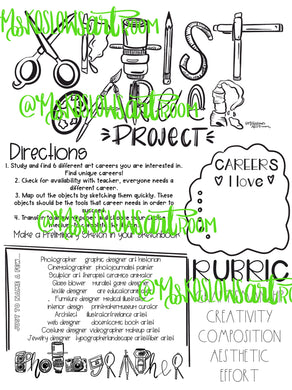 MsKoslowsartROOM
ARTIST
@MsKoslowsartROOM
PROJECT
Directions
1. Study and find 6 different art careers you are interested in.
Find unique careers!
2. Check for availability with teacher, everyone needs a
different career.
3. Map out the objects by sketching them quickly. These
objects should be the tools that career needs in order to
succeed.
Make a Preliminary Sketch in your sketchbook
CAREERS
I love
@MsKoslowsartROOM
JUST TO NAME A FEW...
Photographer graphic designer art historian
Cinematographer photojournalist painter
Sculptor art therapist ceramics animator
Glass blower mural game designer
textile designer educator
Furniture designer medical illustrator
interior design printmaker museum curator
Architect illustration freelance artist
web designer comic book artist
Costume designer videographer makeup artist
Jewelry designer
RUBRIC
CREATIVITY
COMPOSITION
AESTHETIC
EFFORT
PHOTOGRAPHER